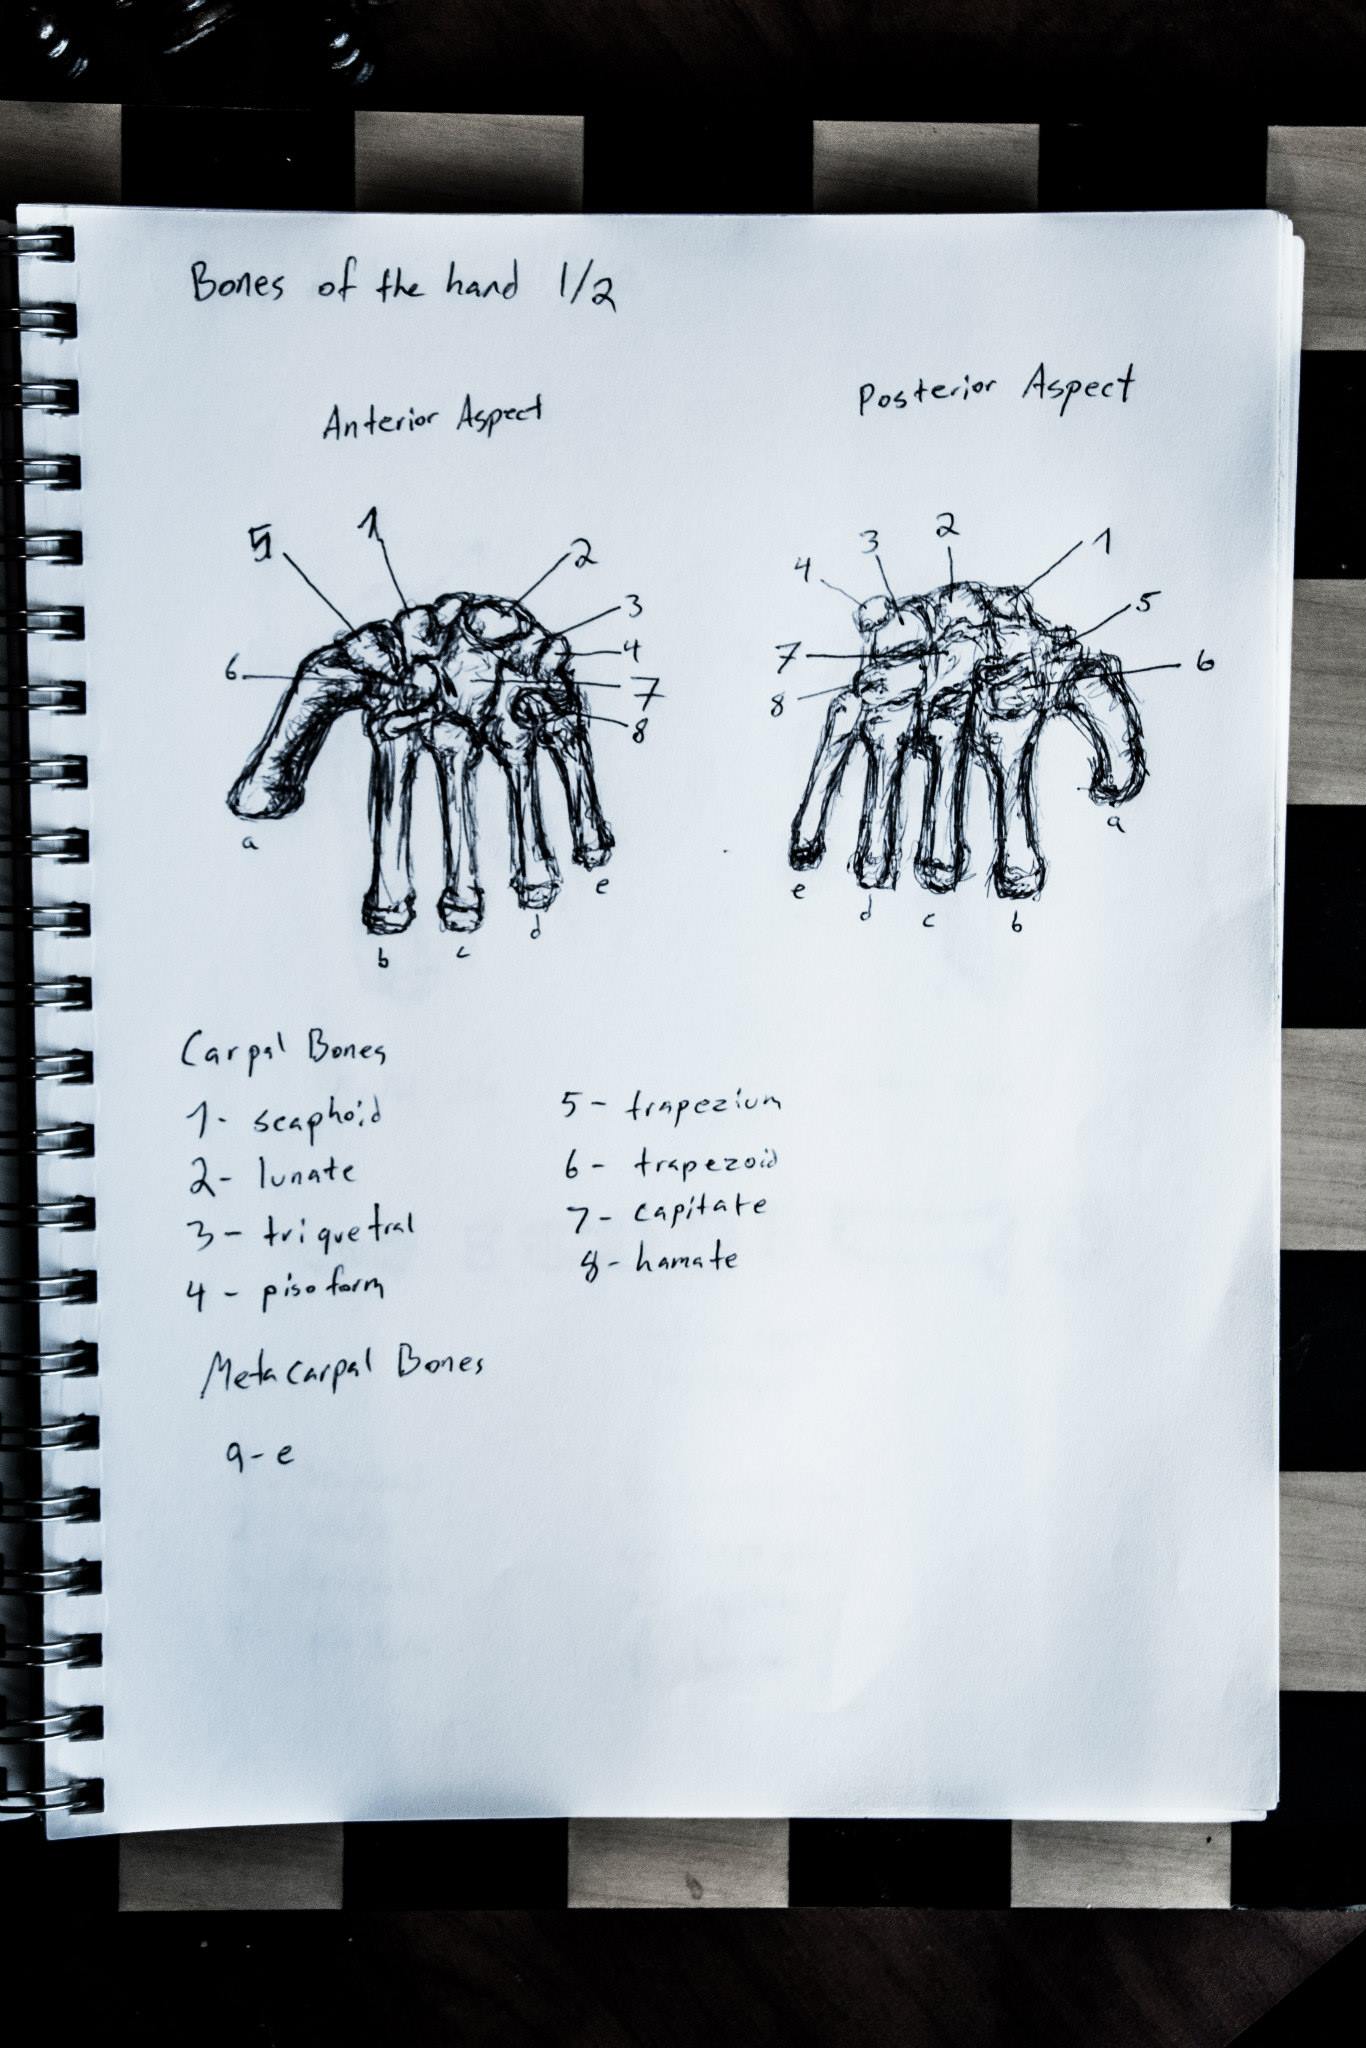 Bones of the hand 1/2
Anterior Aspect
Posterior Aspect
5 1 2 3 4 7 8 6
a b c d e
4 3 2 1 5 6 7 8
e d c b a
Carpal Bones
1- scaphoid
2- lunate
3- triquetral
4- pisoform
5- trapezium
6- trapezoid
7- capitate
8- hamate
Metacarpal Bones
a-e